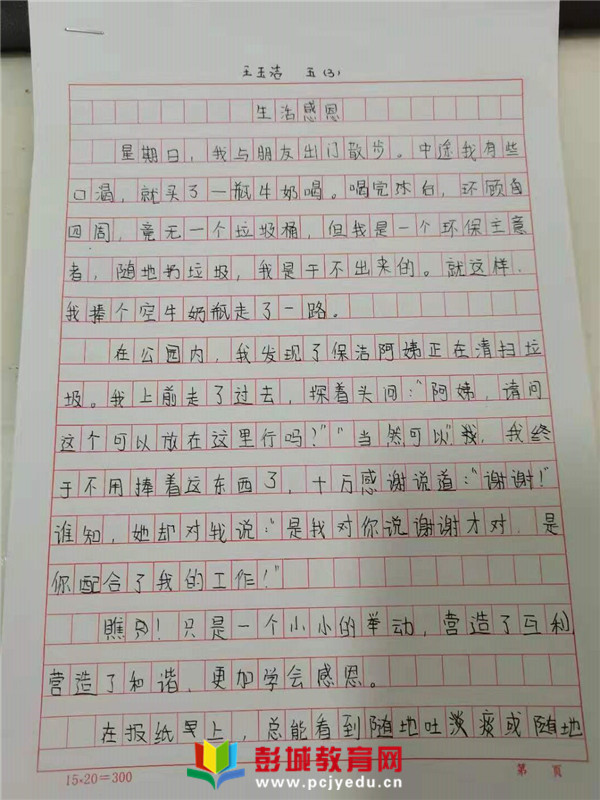 王玉洁 五(3)
生活感恩
星期日，我与朋友出门散步。中途我有些
口渴，就买了一瓶牛奶喝。喝完 ，环顾
四周，竟无一个垃圾桶，但我是一个环保主意
者，随地扔垃圾，我是干不出来的。就这样，
我捧个空牛奶瓶走了一路。
在公园内，我发现了保洁阿姨正在清扫垃
圾。我上前走了过去，探着头问：“阿姨，请问
这个可以放在这里行吗？”“当然可以”我，我终
于不用捧着这东西了，十万感谢说道：“谢谢！”
谁知，她却对我说：“是我对你说谢谢才对，是
你配合了我的工作！”
瞧见！只是一个小小的举动，营造了互利，
营造了和谐，更加学会感恩。
在报纸早上，总能看到随地吐痰或随地
15×20=300
第 页
彭城教育网
www.pcjyedu.cn